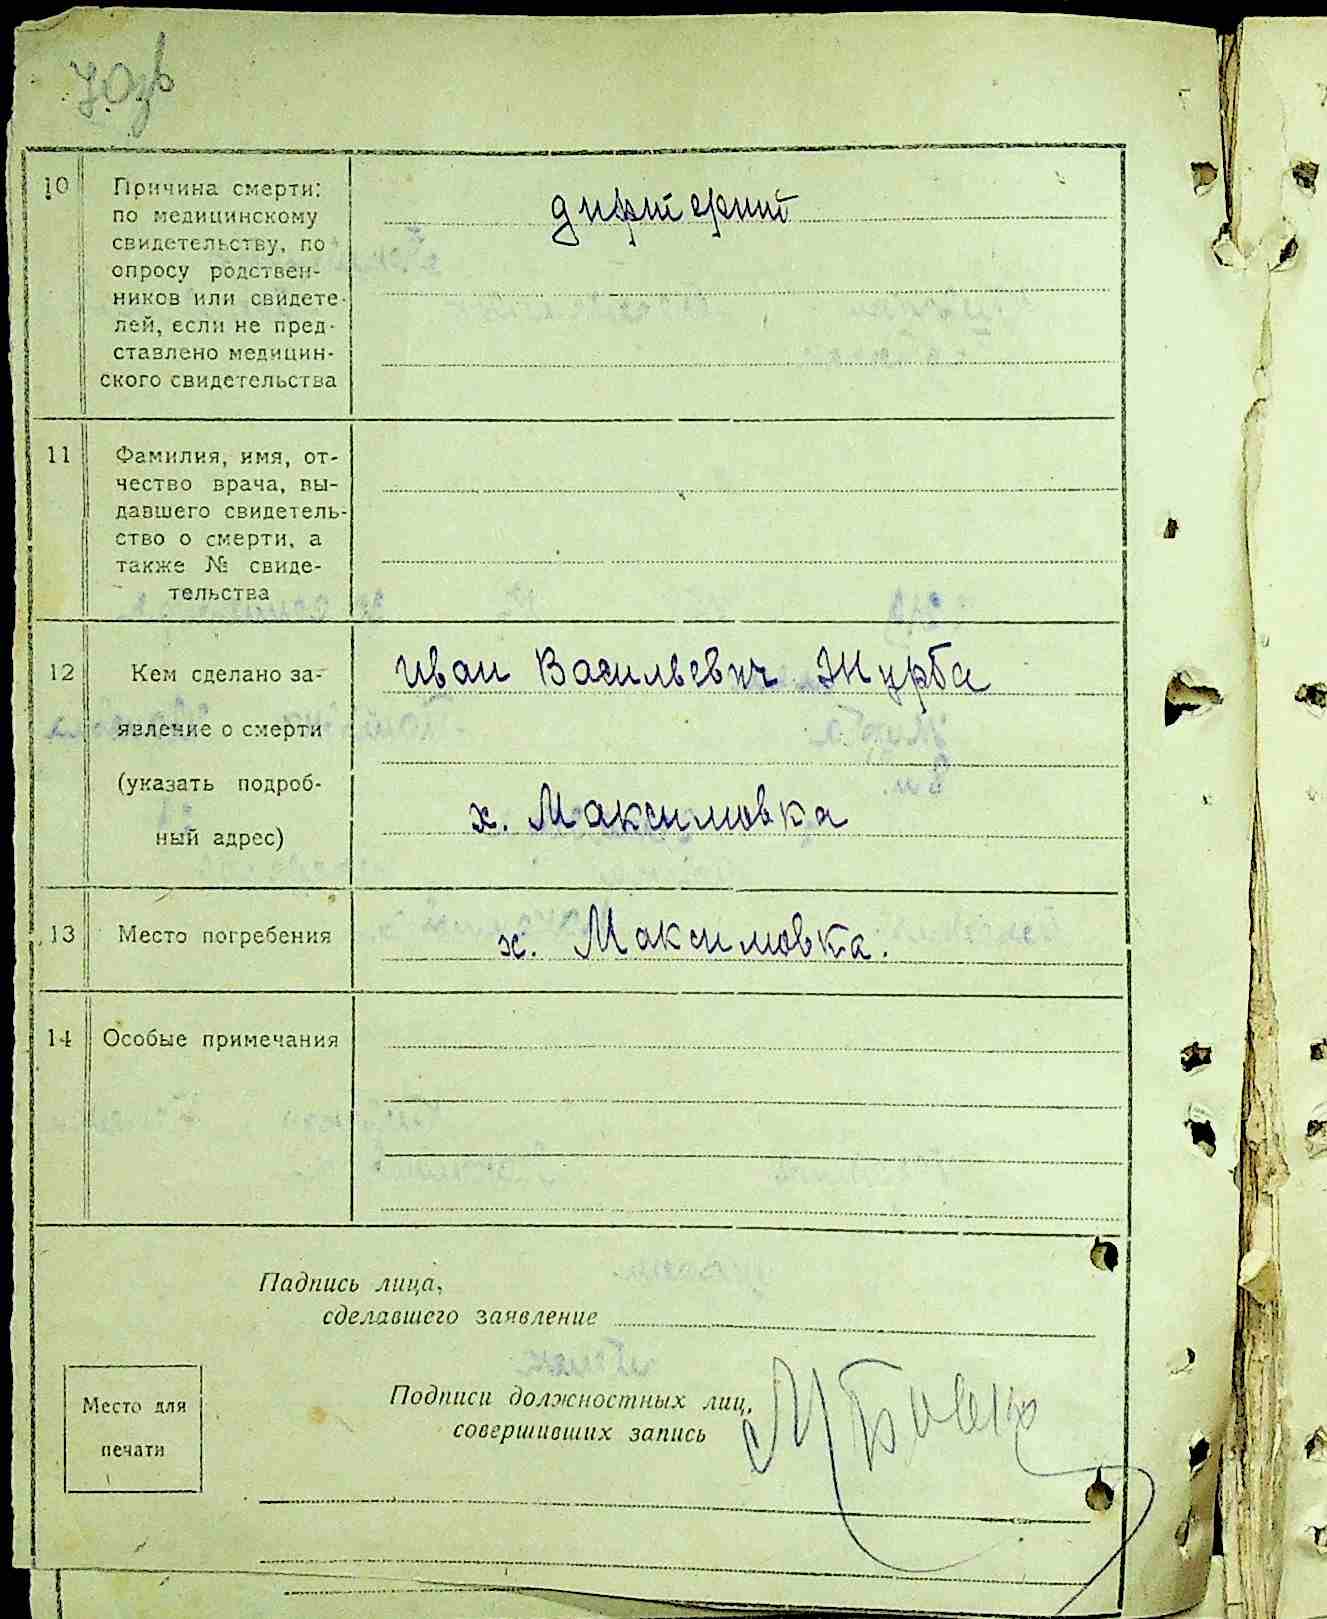 10
Причина смерти:
по медицинскому
свидетельству, по
опросу родствен-
ников или свидете-
лей, если не пред-
ставлено медицин-
ского свидетельства
дифтерит
11
Фамилия, имя, от-
чество врача, вы-
давшего свидетель-
ство о смерти, а
также № свиде-
тельства
12
Кем сделано за-
явление о смерти
(указать подроб-
ный адрес)
Иван Васильевич Журба
х. Максимовка
13
Место погребения
х. Максимовка.
14
Особые примечания
Падпись лица,
сделавшего заявление
Место для
печати
Подписи должностных лиц,
совершивших запись